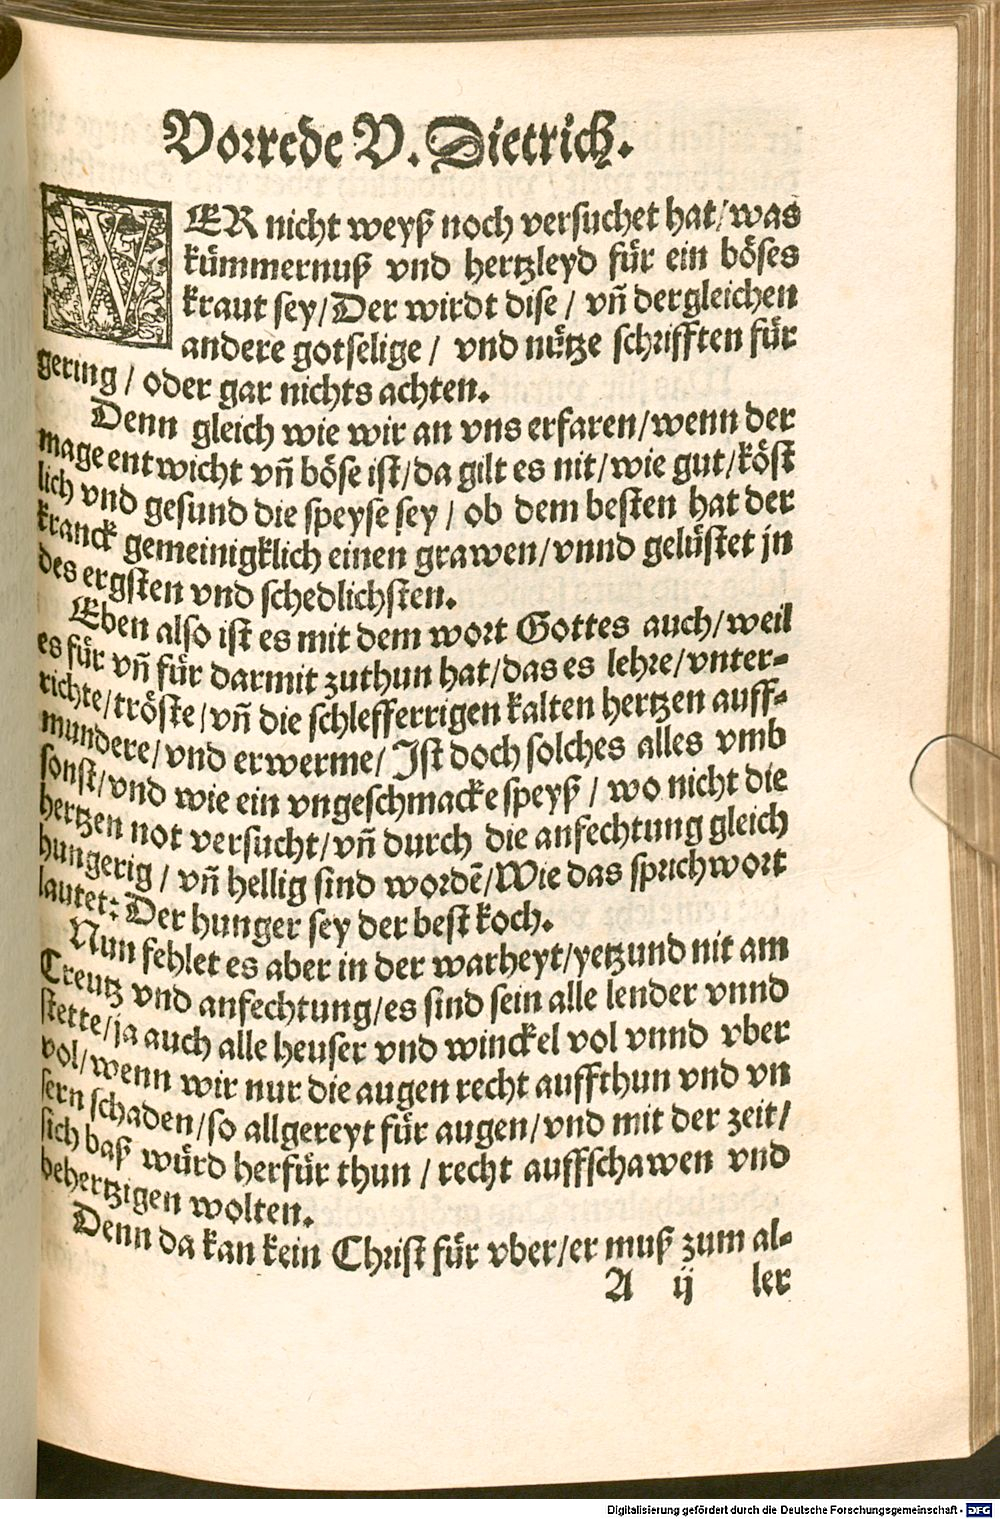 Vorrede V. Dietrich.
WER nicht weyß noch versuchet hat/was
kümmernuß vnd hertzleyd für ein böses
kraut sey/Der wirdt dise / vñ dergleichen
andere gotselige / vnd nütze schrifften für
gering / oder gar nichts achten.
Denn gleich wie wir an vns erfaren/wenn der
mage entwicht vñ böse ist/da gilt es nit/wie gut/köst
lich vnd gesund die speyse sey / ob dem besten hat der
kranck gemeinigklich einen grawen/vnnd gelüstet jn
des ergsten vnd schedlichsten.
Eben also ist es mit dem wort Gottes auch/weil
es für vñ für darmit zuthun hat/das es lehre/vnter-
richte/tröste/vñ die schlefferrigen kalten hertzen auff-
mundere/vnd erwerme/ Ist doch solches alles vmb
sonst/vnd wie ein vngeschmacke speyß / wo nicht die
hertzen not versucht/vñ durch die anfechtung gleich
hungerig / vñ hellig sind wordẽ/Wie das sprichwort
lautet: Der hunger sey der best koch.
Nun fehlet es aber in der warheyt/yetzund nit am
Creutz vnd anfechtung/es sind sein alle lender vnnd
stette/ja auch alle heuser vnd winckel vol vnnd vber
vol/wenn wir nur die augen recht auffthun vnd vn
sern schaden/so allgereyt für augen/vnd mit der zeit/
sich baß würd herfür thun / recht auffschawen vnd
behertzigen wolten.
Denn da kan kein Christ für vber/er muß zum al-
A ij ler
Digitalisierung gefördert durch die Deutsche Forschungsgemeinschaft - DFG